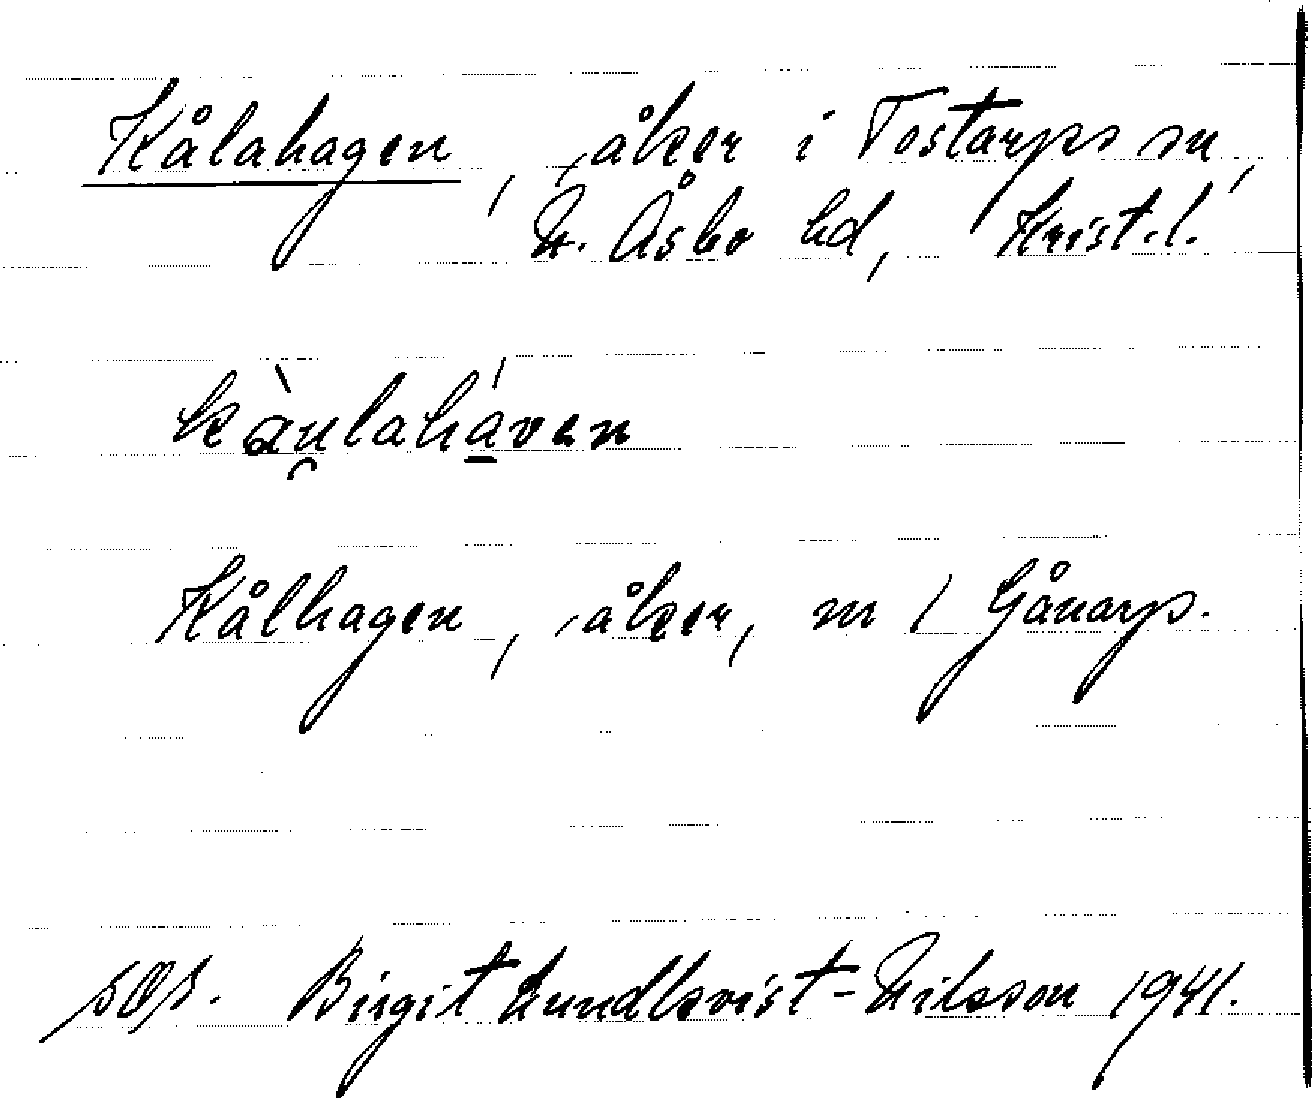 Kålahagen, åker i Tostarps sn,
N. Åsbo hd, Krist.l.
kàu̯lahá̲ven
Kålhagen, åker, nr 1 Gånarp.
Birgit Lundkvist-Nilsson 1941.